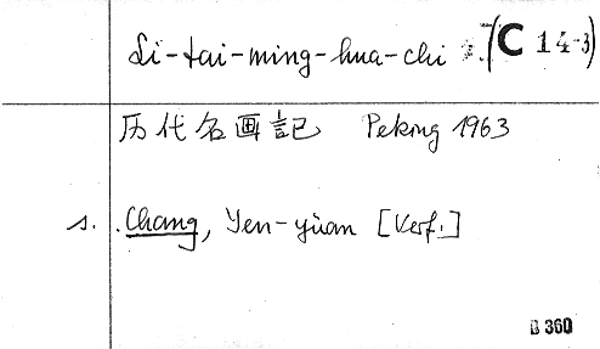 Li-tai-ming-hua-chi (C 14-3)
历代名画記 Peking 1963
s. Chang, Yen-yüan [Verf.]
B 360